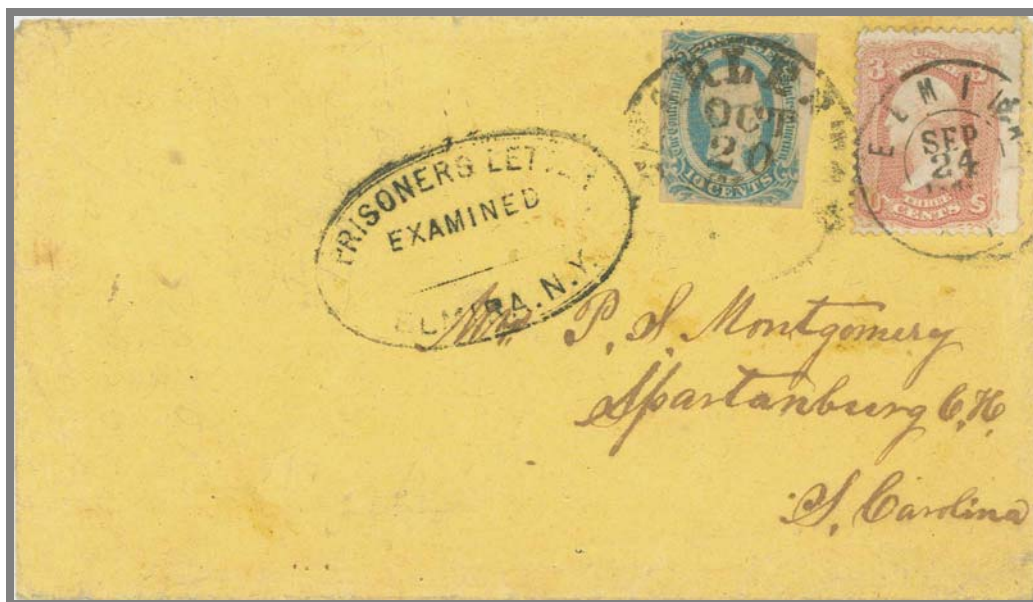 PRISONERS LETTER
EXAMINED
ELMIRA. N.Y.
OCT
20
10 CENTS
3
U.S.
SEP
24
CENTS
Mrs P. S. Montgomery
Spartanburg C.H.
S. Carolina